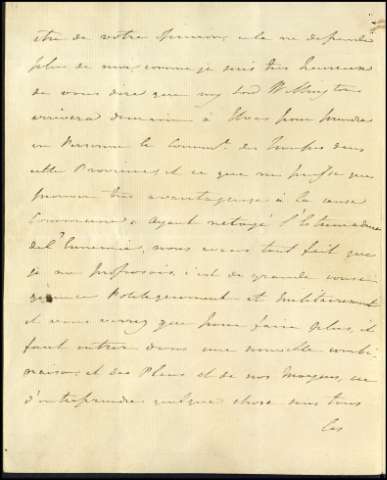 être de votre opinion, cela ne depende
plus de moi, comme je suis très heureux
de vous dire que my Lord Wellington
arrivera demain à Elvas pour prendre
en Personne le Command.t des troupes dans
cette Province, et ce que ne puisse que
prouver très avantageuse à la cause
Commune. Ayant netoyé l'Estremadure
de l'Ennemie, nous avons tout fait que
je me proposois; c'est de grande consé
quence Politiquement et Militairement
et vous verrez que pour faire plus, il
faut entrer dans une nouvelle combi
naison, et des Plans et de nos Moyens, ou
d'entreprendre quelque chose sous tous
les